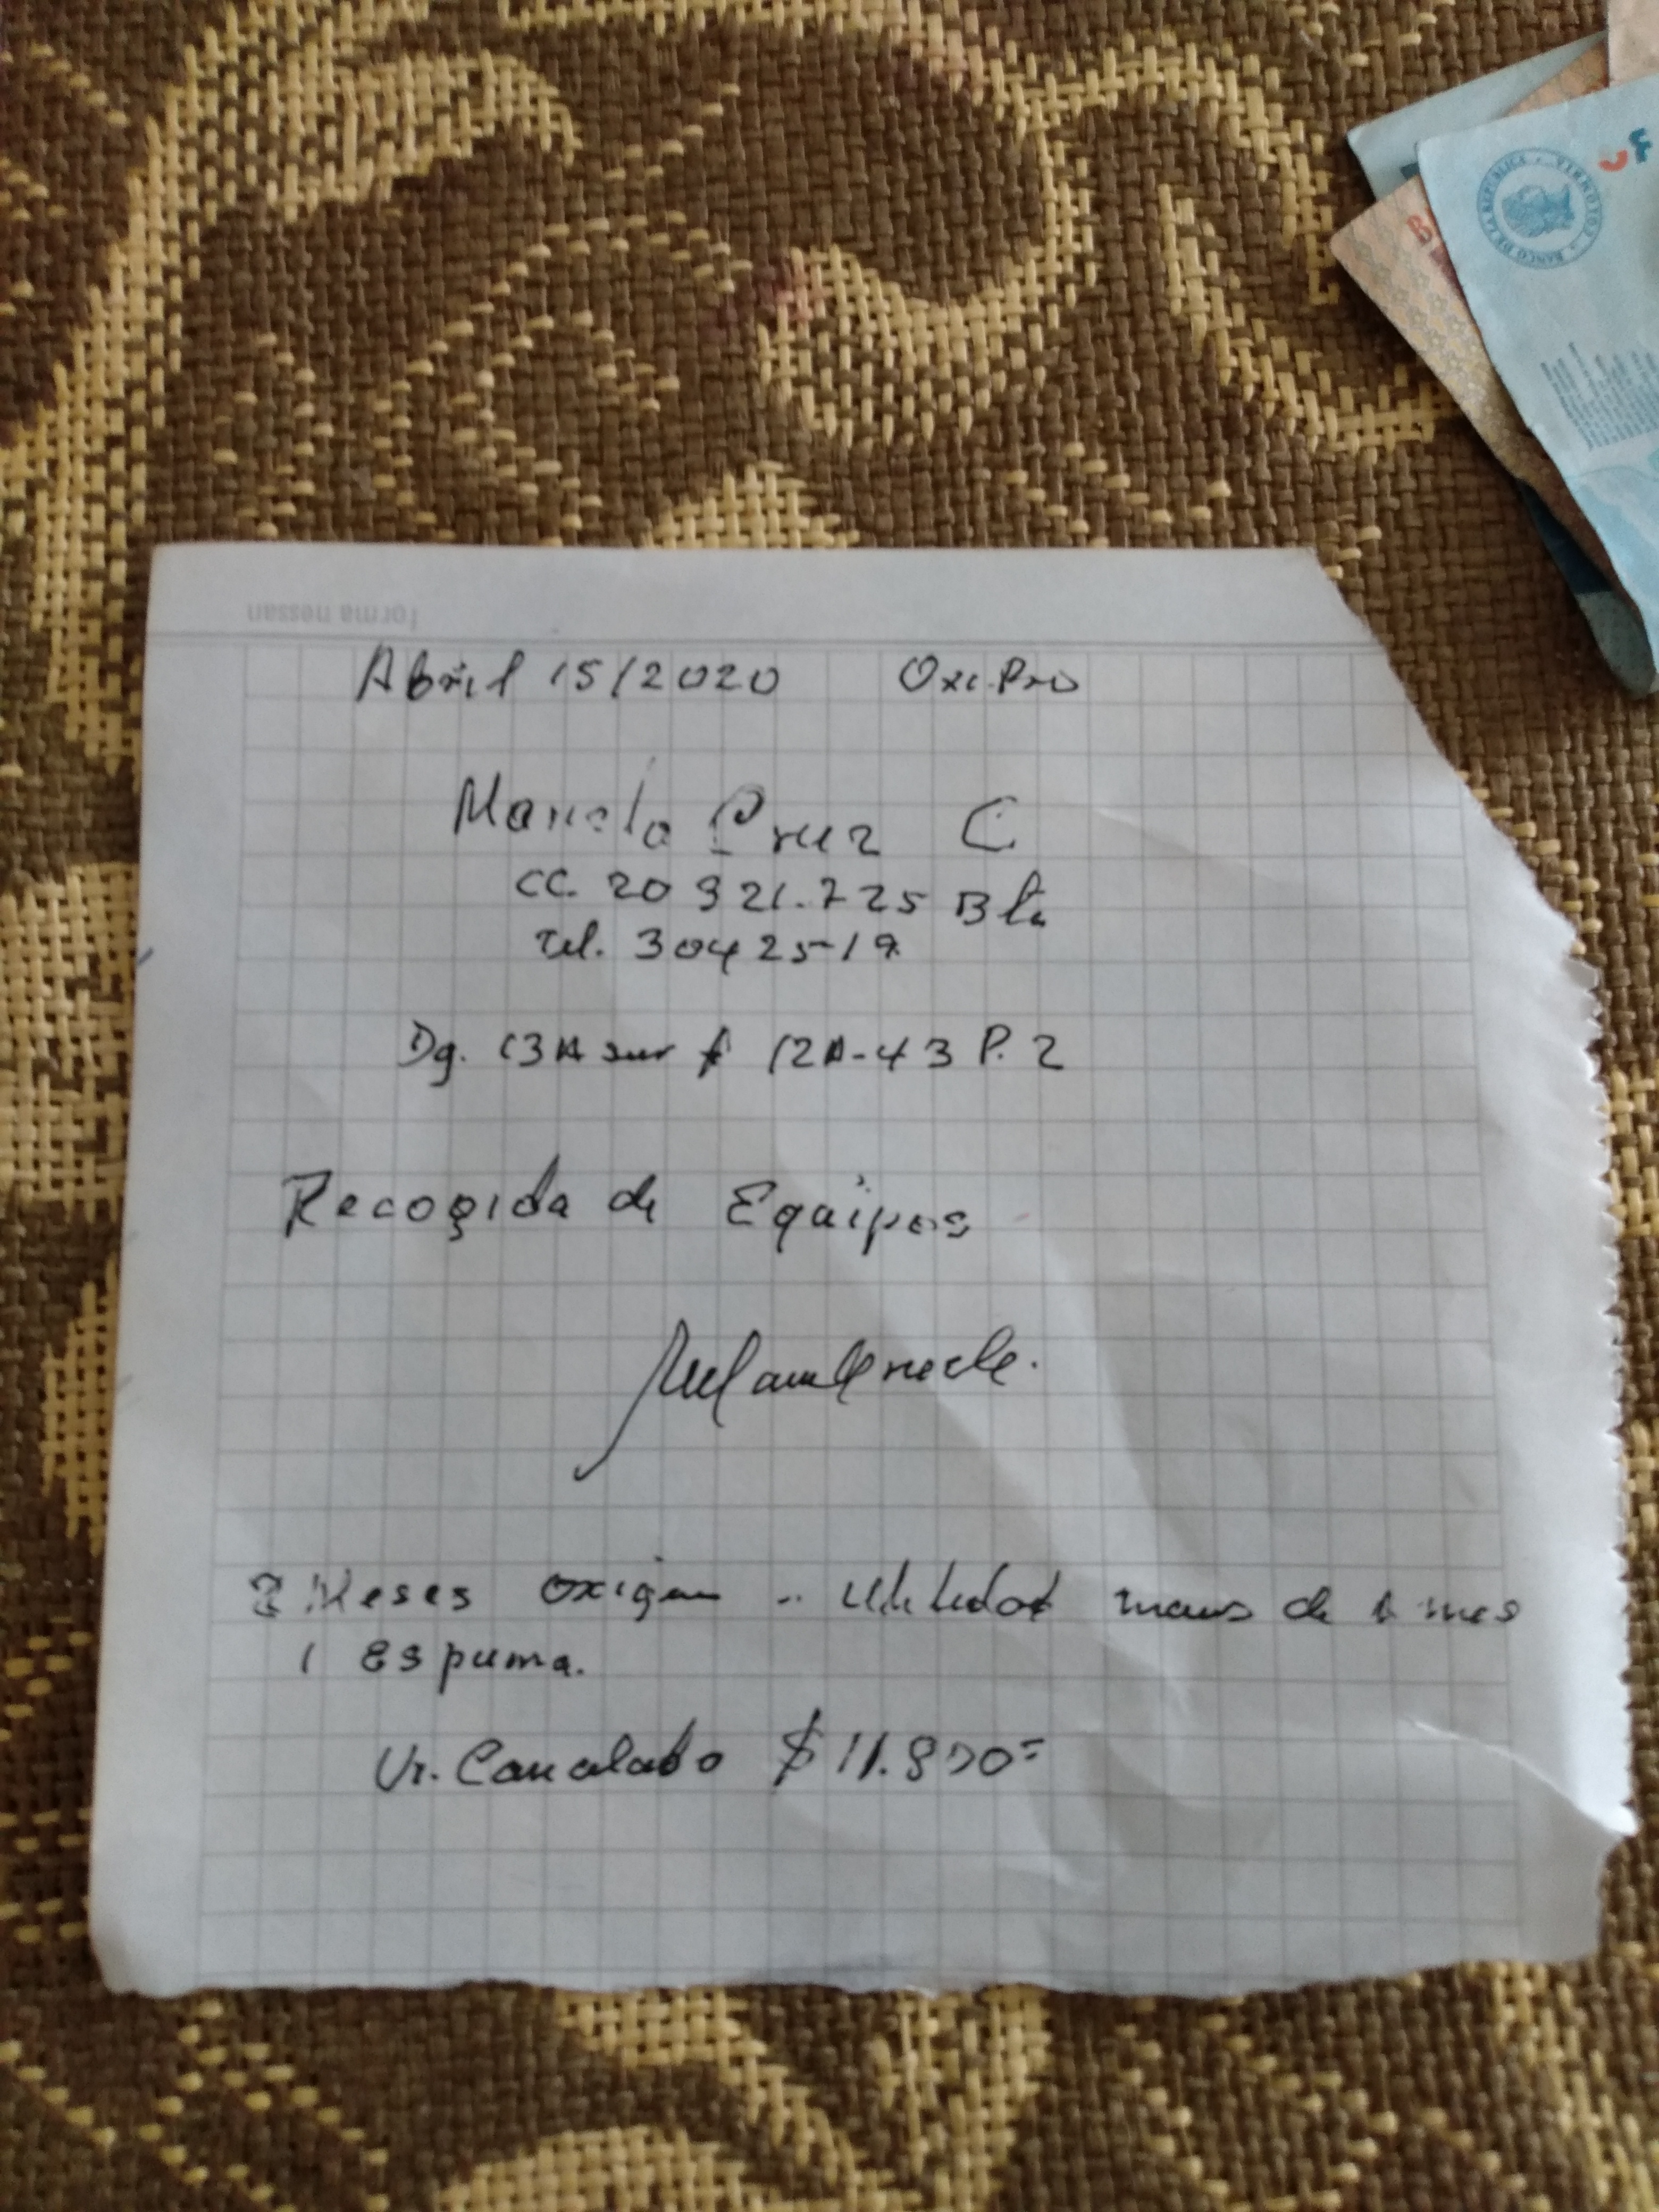 BANCO DE LA REPUBLICA COLOMBIA
forma nessan
Abril 15/2020 Oxi.Pro
Cruz C
CC. 20 321.725 Bta
Tel. 3042519
Dg. 13A sur # 12A-43 P. 2
Recogida de Equipos
2 Meses oxigen .. menos de 1 mes
1 Espuma.
Vr. Cancelado $ 11.800=